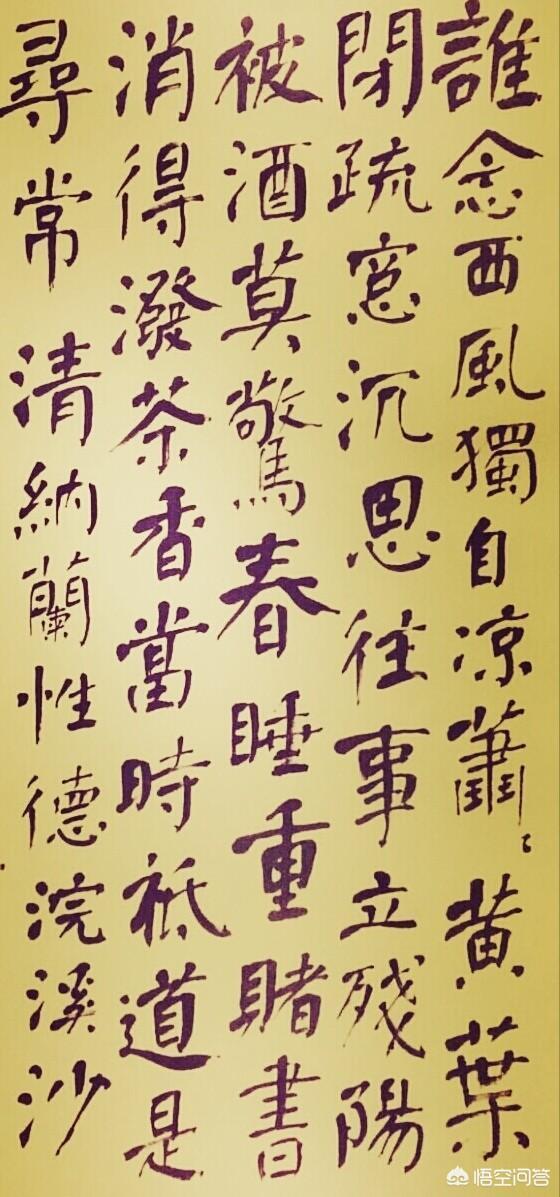 誰念西風獨自凉蕭〻黄葉
閉疏窓沉思往事立残陽
被酒莫驚春睡重賭書
消得潑茶香當時祇道是
尋常 清納蘭性德浣溪沙
悟空问答